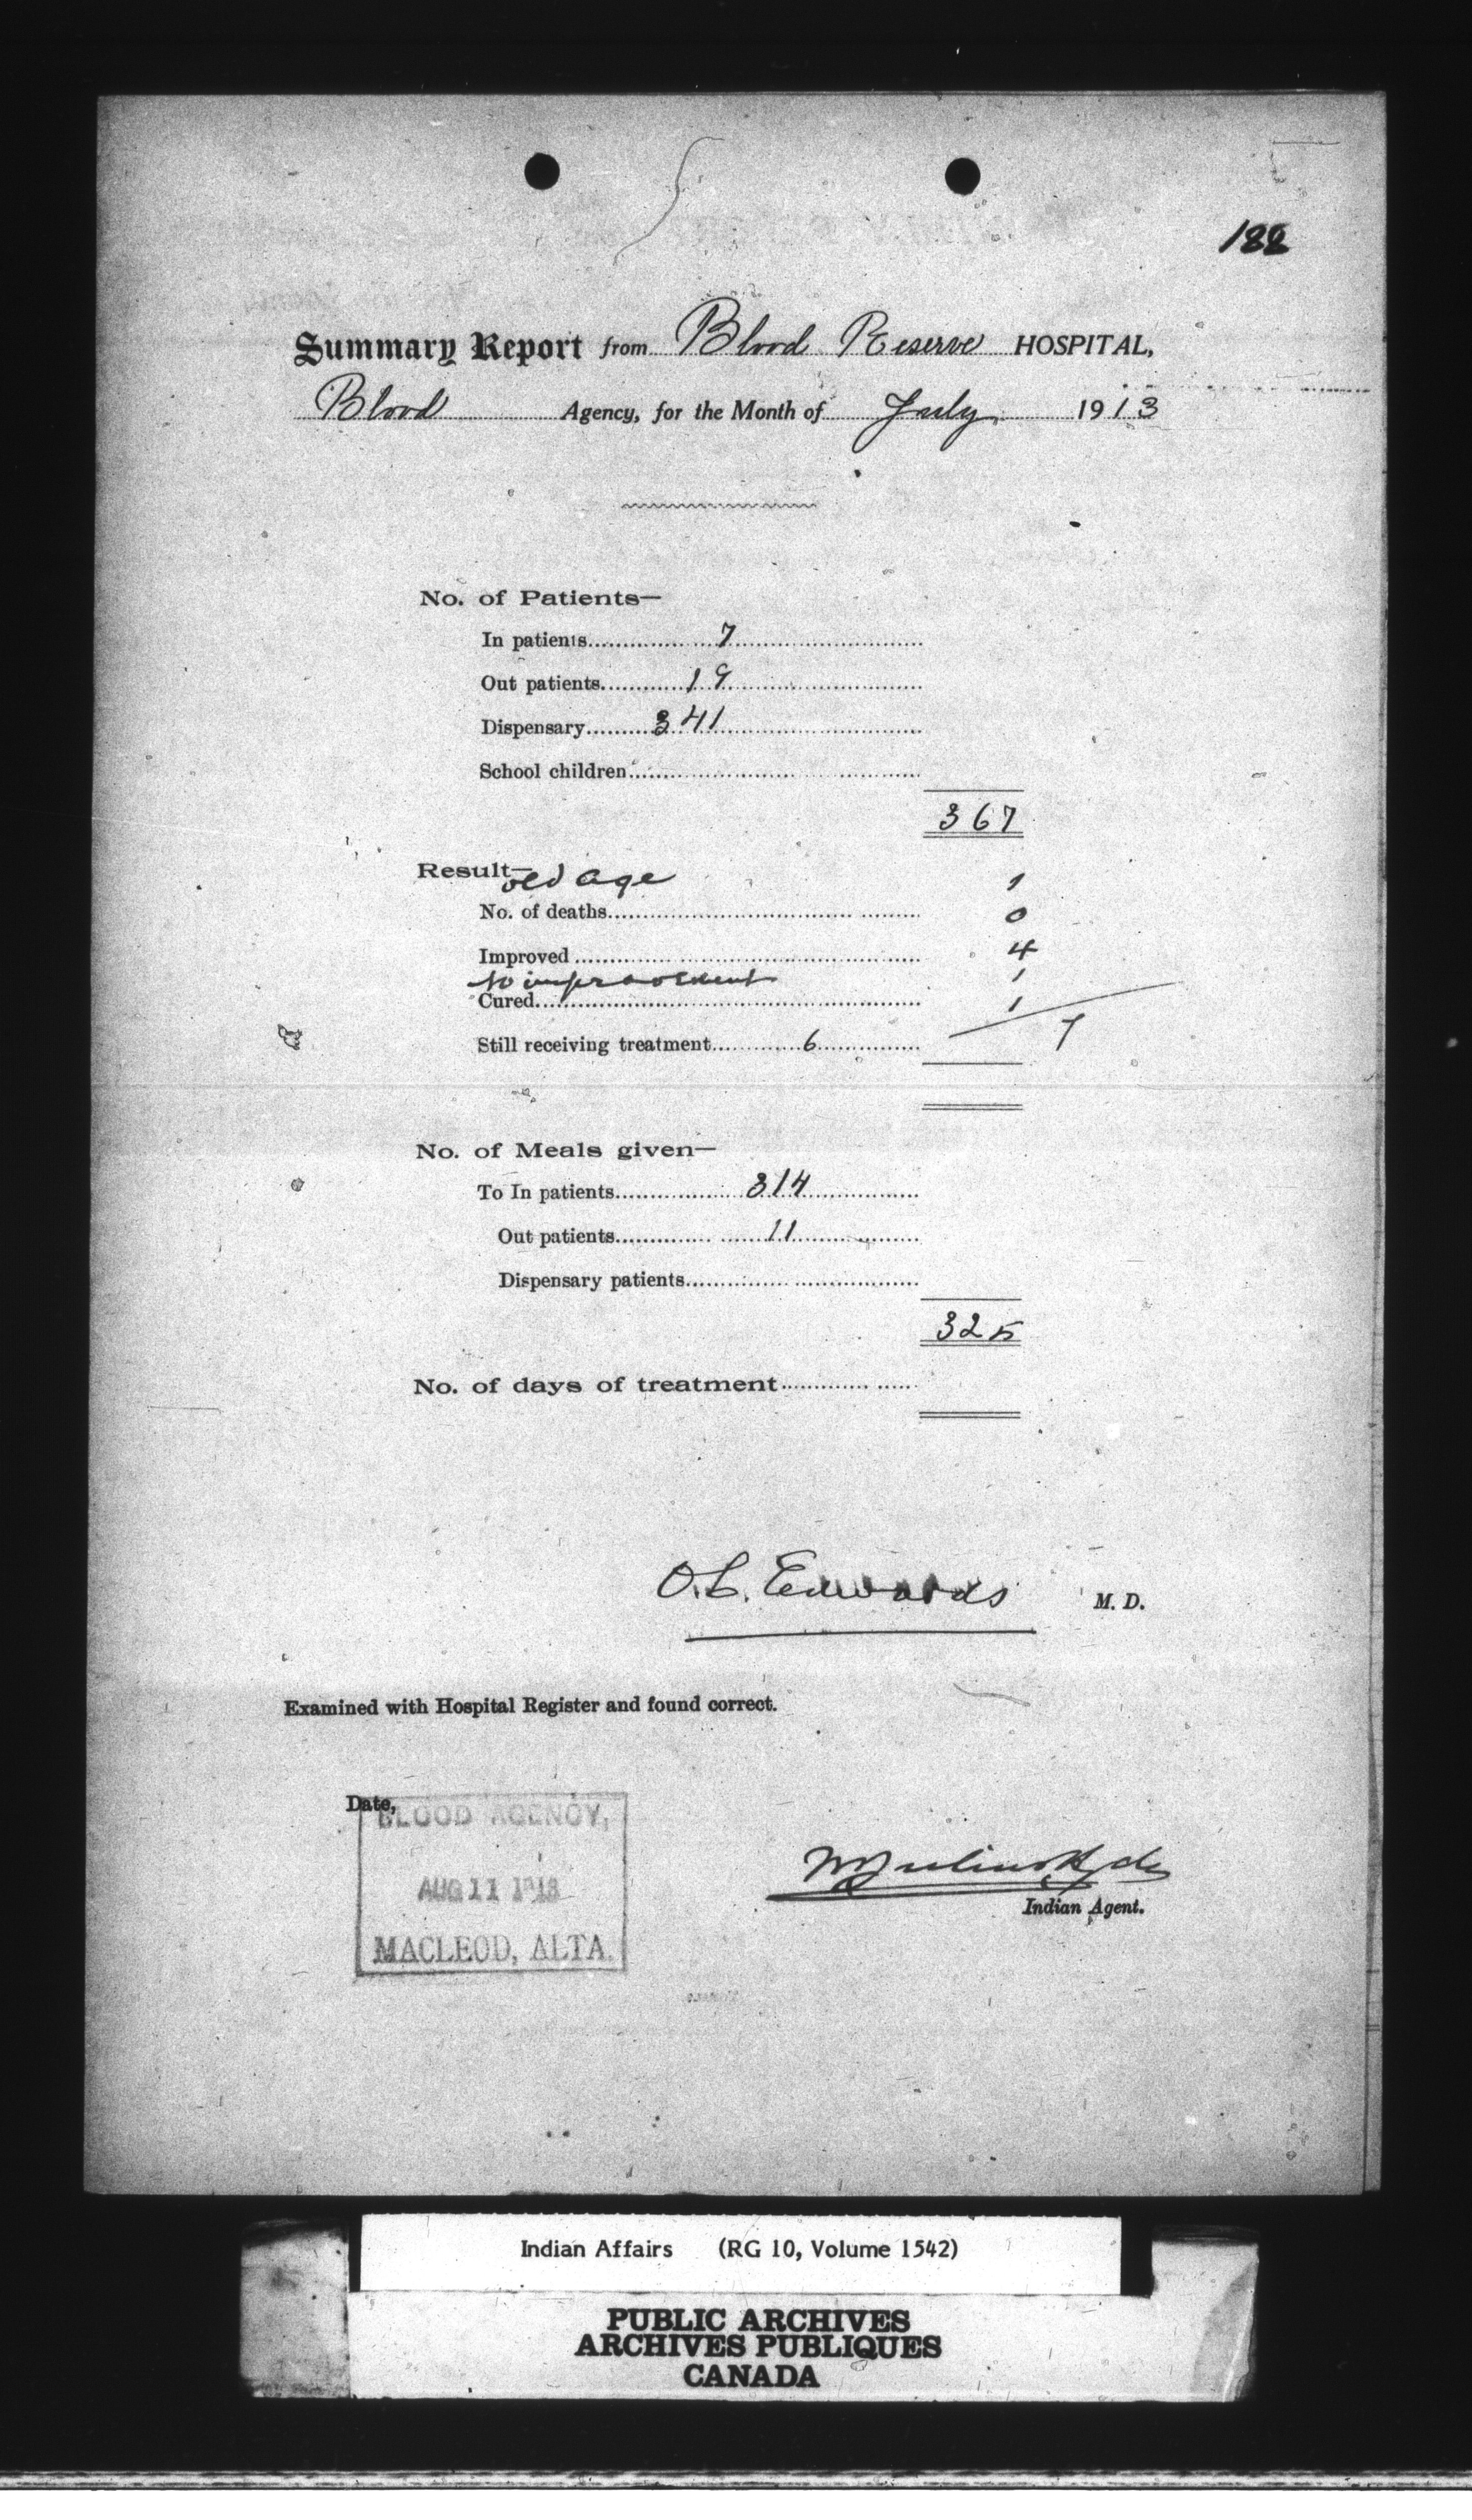 188
Summary Report from Blood Reserve HOSPITAL,
Blood Agency, for the Month of July 1913
No. of Patients—
In patients 7
Out patients 19
Dispensary 341
School children
367
Result—
old age 1
No. of deaths 0
Improved 4
No improvement 1
Cured 1
7
Still receiving treatment 6
No. of Meals given—
To In patients 314
Out patients 11
Dispensary patients
325
No. of days of treatment
O.C. Edwards M. D.
Examined with Hospital Register and found correct.
Date,
BLOOD AGENCY,
AUG 11 1913
MACLEOD, ALTA.
Indian Agent.
Indian Affairs (RG 10, Volume 1542)
PUBLIC ARCHIVES
ARCHIVES PUBLIQUES
CANADA